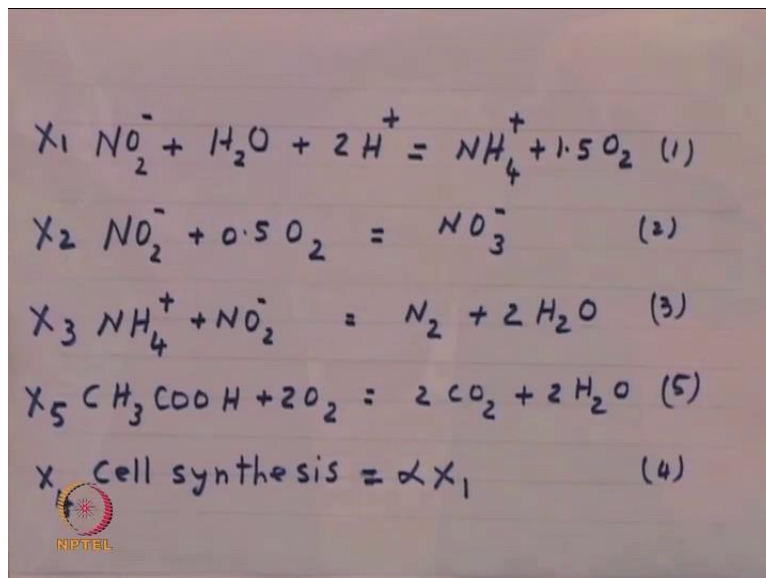 X₁ NO₂⁻ + H₂O + 2H⁺ = NH₄⁺ + 1.5O₂ (1)
X₂ NO₂⁻ + 0.5O₂ = NO₃⁻ (2)
X₃ NH₄⁺ + NO₂⁻ = N₂ + 2H₂O (3)
X₅ CH₃COOH + 2O₂ = 2CO₂ + 2H₂O (5)
X Cell synthesis = αX₁ (4)
NPTEL